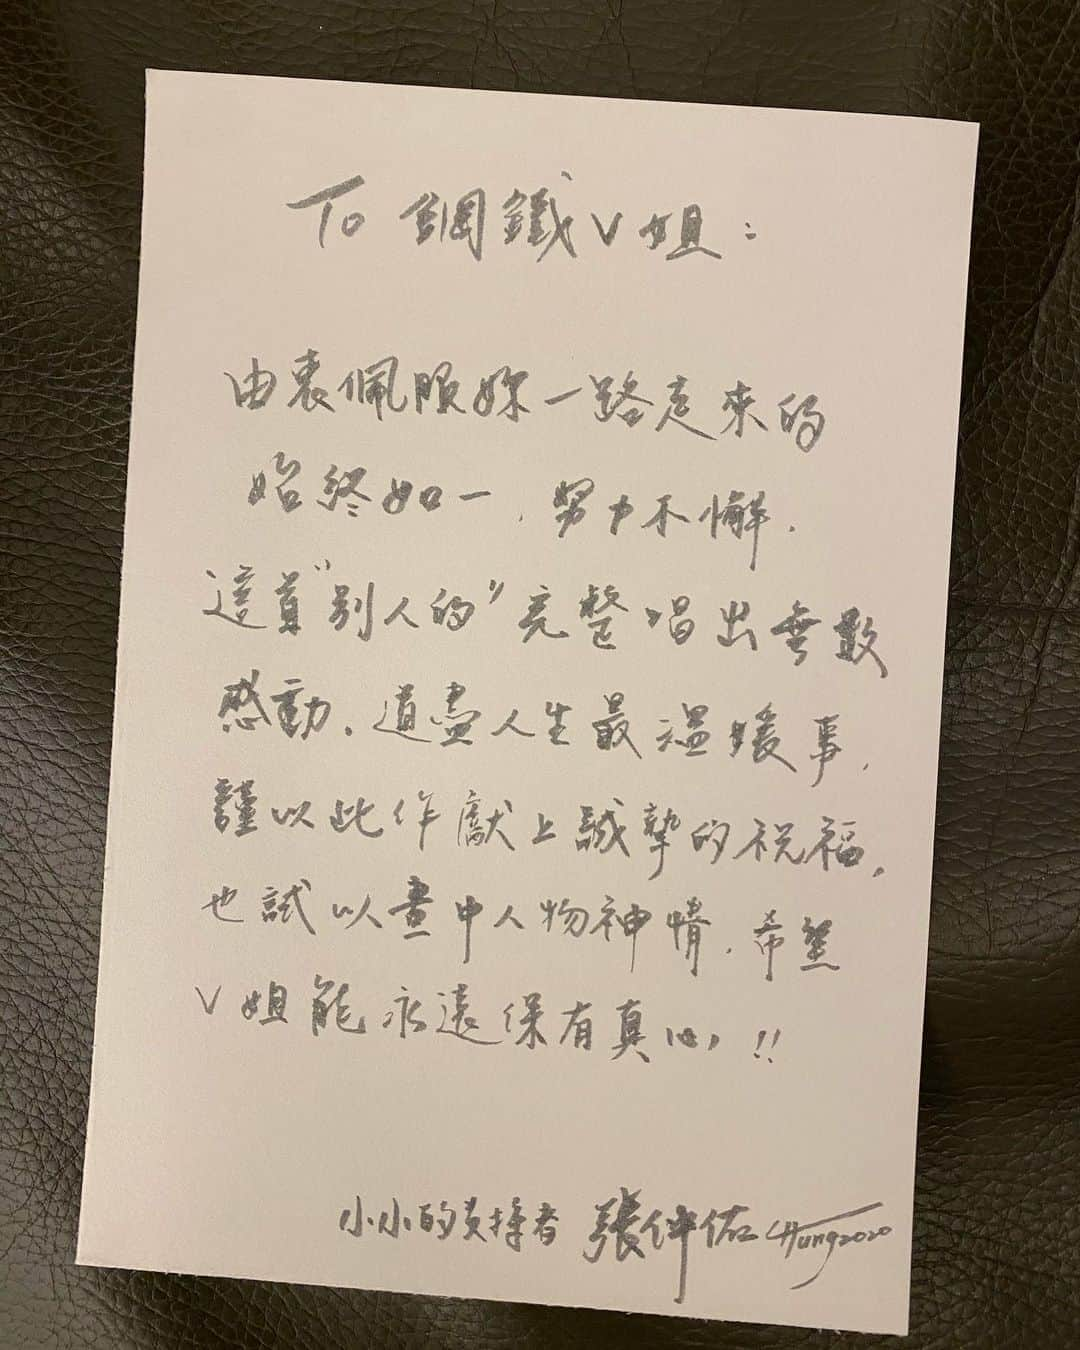 To 鋼鐵V姐：
由衷佩服妳一路走來的
始終如一，努力不懈．
這首"別人的"完整唱出無數
感動．道盡人生最溫暖事，
謹以此作獻上誠摯的祝福，
也試以畫中人物神情，希望
V姐能永遠保有真心!!
小小的支持者 張仲佑 CHung2020